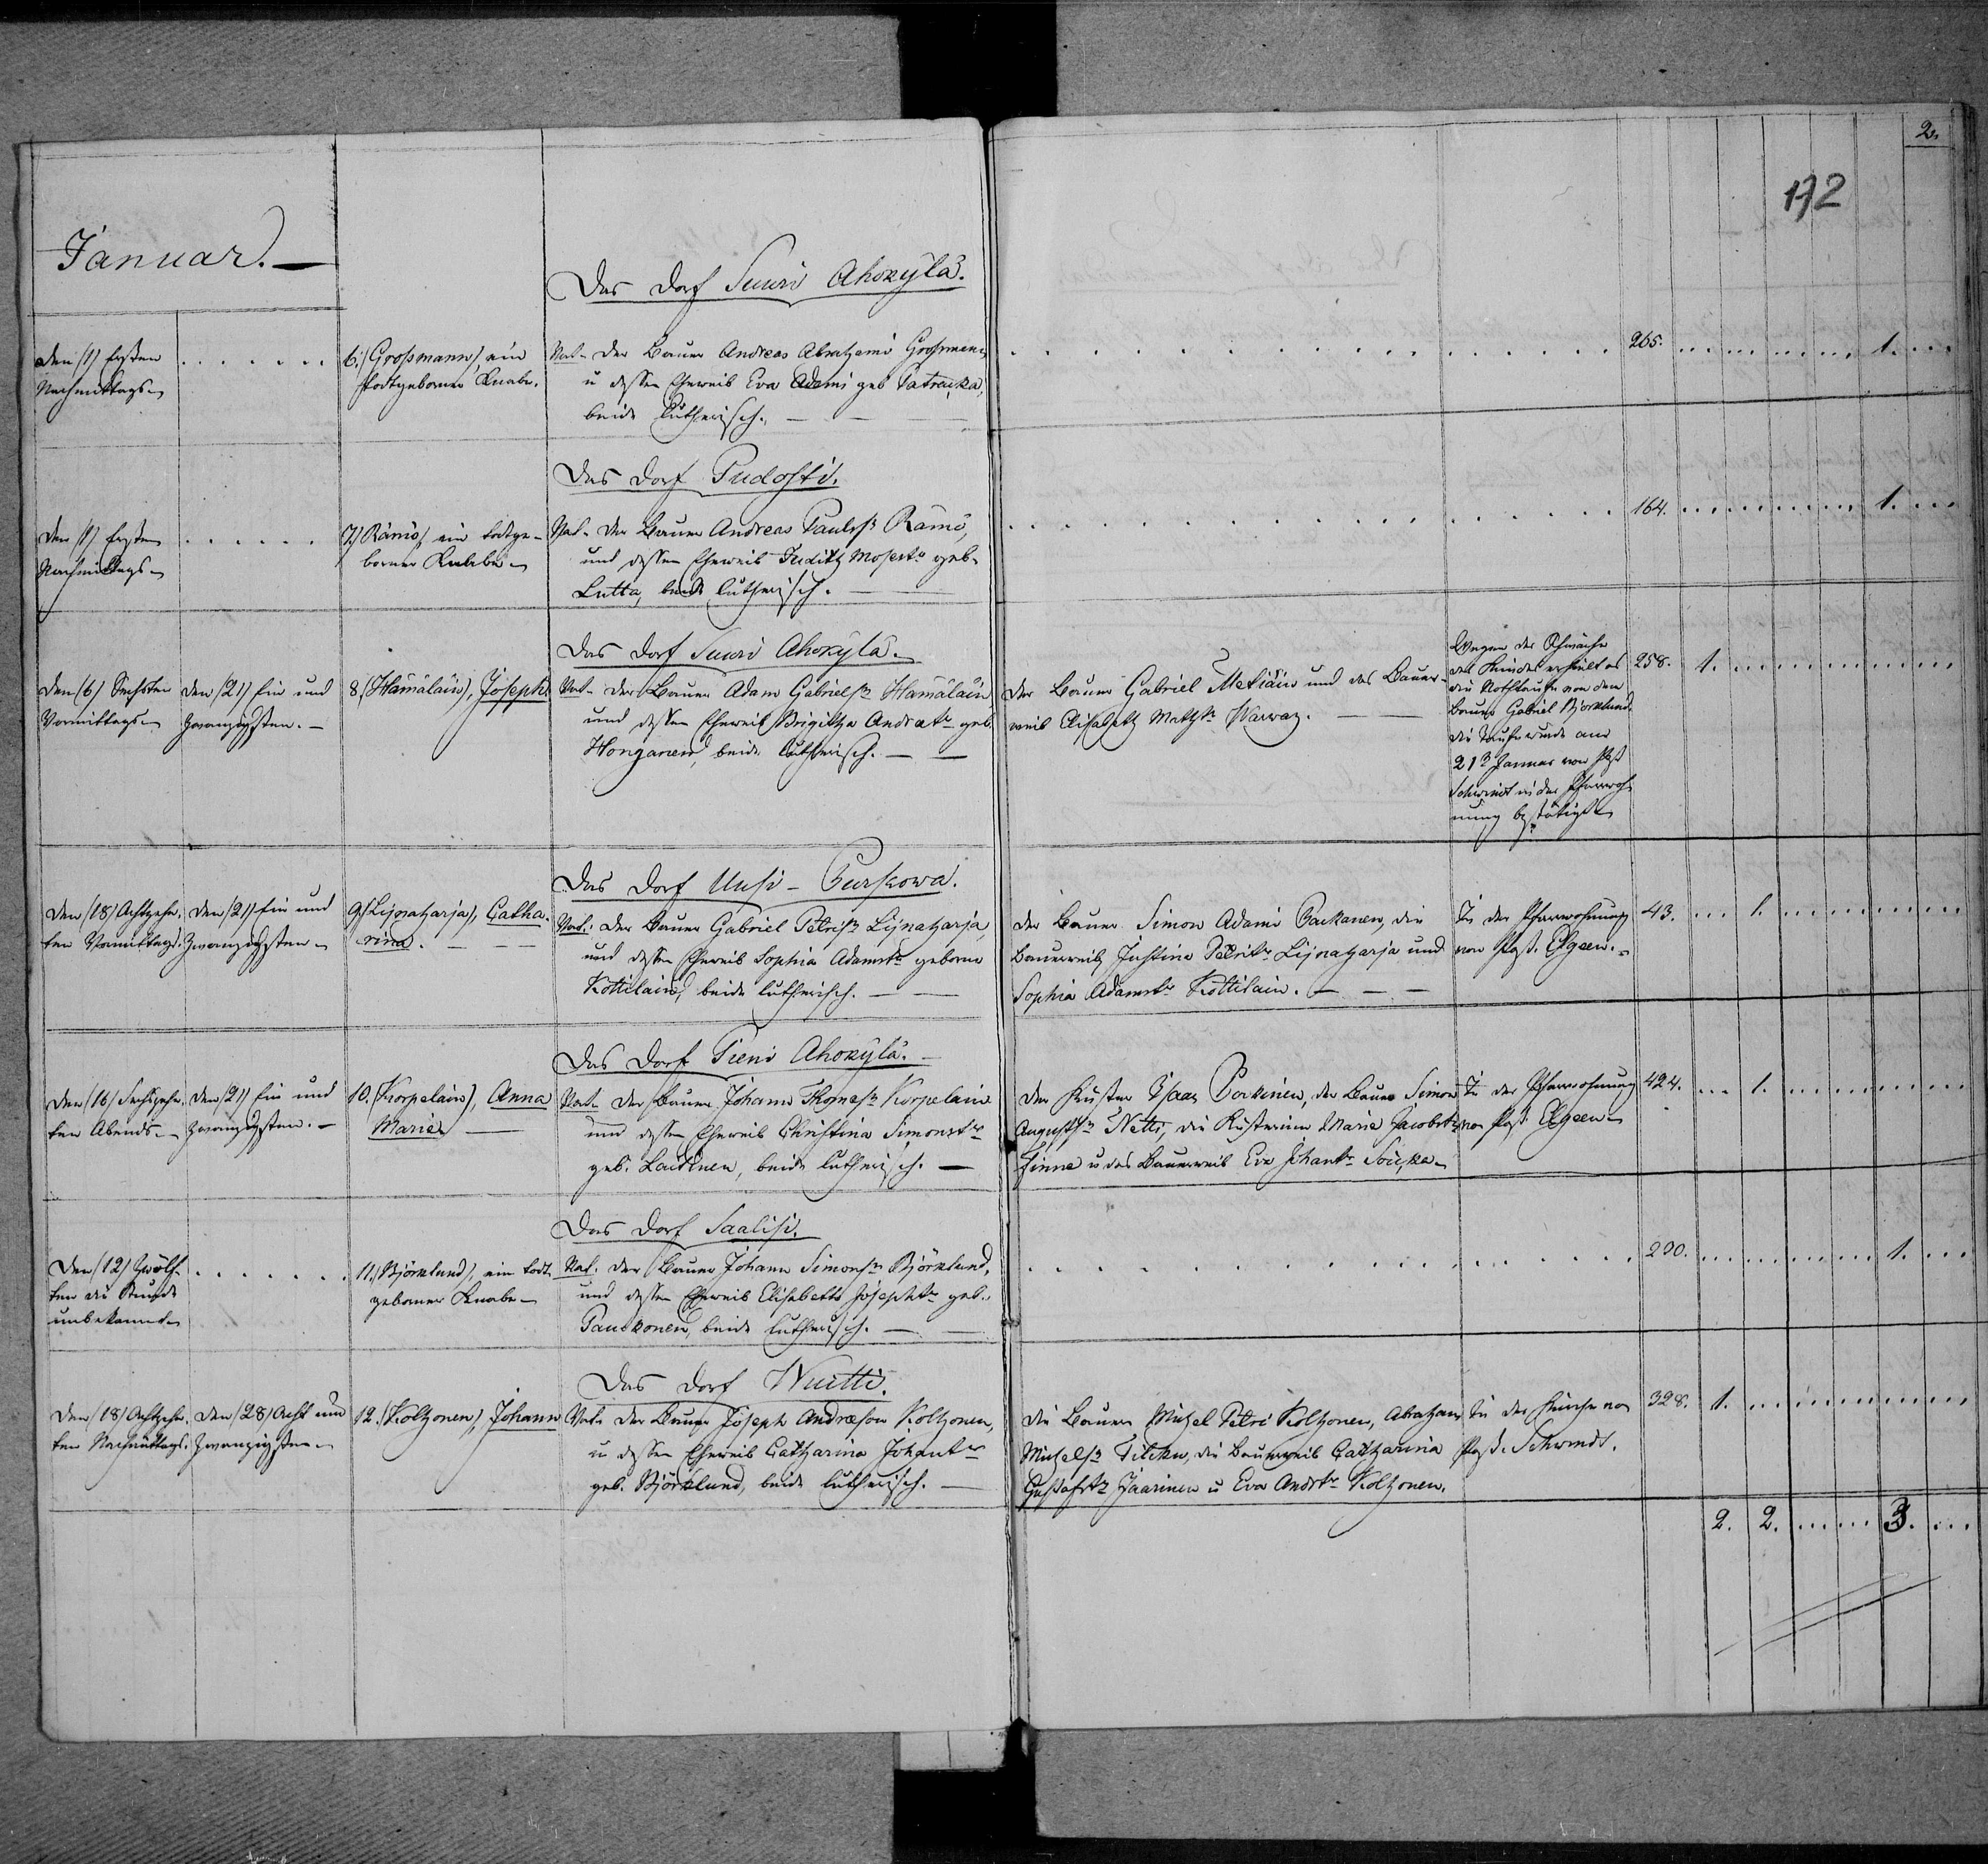 2.
172
Januar. —
Das Dorf Suuri Ahokylä.
Den (1) Ersten
Nachmittags.
6.) (Grossmann), ein
todtgeborner Knabe.
Vat. Der Bauer Andreas Abrahami Grossmann
u dessen Eheweib Eva Adami geb Patrikka,
beide lutherisch. —
265. 1.
Das Dorf Pudosti.
Den (1) Ersten
Nachmittags.
7.) (Rämö), ein todtge-
borner Knabe.
Vat. Der Bauer Andreas Paulss. Rämö,
und dessen Eheweib Judith Mosestr. geb.
Lutta, beide lutherisch. —
164. 1.
Das Dorf Suuri Ahokylä.
Den (6) Sechsten
Vormittags.
Den (21) Ein und
Zwanzigsten. —
8.) (Hämäläin), Joseph.
Vat. Der Bauer Adam Gabrielss. Hämäläin
und dessen Eheweib Brigitha Andreatr. geb.
Honganen, beide lutherisch. —
Der Bauer Gabriel Metiäin und das Bauer-
weib Elisabeth Mathtr. Warwas. —
Wegen der Schwäche
des Kindes erhielt es
die Nothtaufe von dem
Bauer Gabriel Björklund.
die Taufe wurde am
21n Januar von Past
Schwindt in der Pfarrwoh-
nung bestätigt.
258. 1.
Das Dorf Uusi - Purskowa.
Den (18) Achtzehn-
ten Vormittags.
Den (21) Ein und
Zwanzigsten.
9.) (Lijnaharja), Catha-
rina. —
Vat. Der Bauer Gabriel Petriss. Lijnaharja,
und dessen Eheweib Sophia Adamstr. geborne
Kottilain, beide lutherisch. —
Der Bauer Simon Adami Packanen, die
Bauerweib Justina Petritr. Lijnaharja und
Sophia Adamstr. Kottilain. —
In der Pfarrwohnung
von Past. Elgeen.
43. 1.
Das Dorf Pieni Ahokylä. —
Den (16) Sechszehn-
ten Abends.
Den (21) Ein und
Zwanzigsten. —
10.) (Korpelain), Anna
Maria —
Vat. Der Bauer Johann Thomass. Korpelain
und dessen Eheweib Christina Simonstr.
geb. Laitinen, beide lutherisch. —
Der Küster Isaac Porkinen, der Bauer Simon
Augustss. Netti, die Küsterinn Maria Jacobstr.
Finne u das Bauerweib Eva Johantr. Soukka.
In der Pfarrwohnung
von Past. Elgeen.
424. 1.
Das Dorf Saalisi.
Den (12) Zwölf-
ten die Stunde
unbekannt.
11.) (Björklund), ein todt-
geborner Knabe.
Vat. Der Bauer Johann Simonss. Björklund,
und dessen Eheweib Elisabeth Josephtr. geb.
Pauckonen, beide lutherisch. —
230. 1.
Das Dorf Wuitti.
Den (18) Achtzehn-
ten Nachmittags.
Den (28) Acht und
Zwanzigsten.
12.) (Kolhonen), Johann
Vat. Der Bauer Joseph Andreson Kolhonen,
u dessen Eheweib Catharina Johantr.
geb. Björklund, beide lutherisch. —
Die Bauern Michel Petri Kolhonen, Abraham
Michelss. Tilcku, die Bauerweib Catharina
Gustafstr. Jaarinen u Eva Andrtr. Kolhonen.
In der Kirche von
Past. Schwindt.
328. 1.
2. 2. 3.